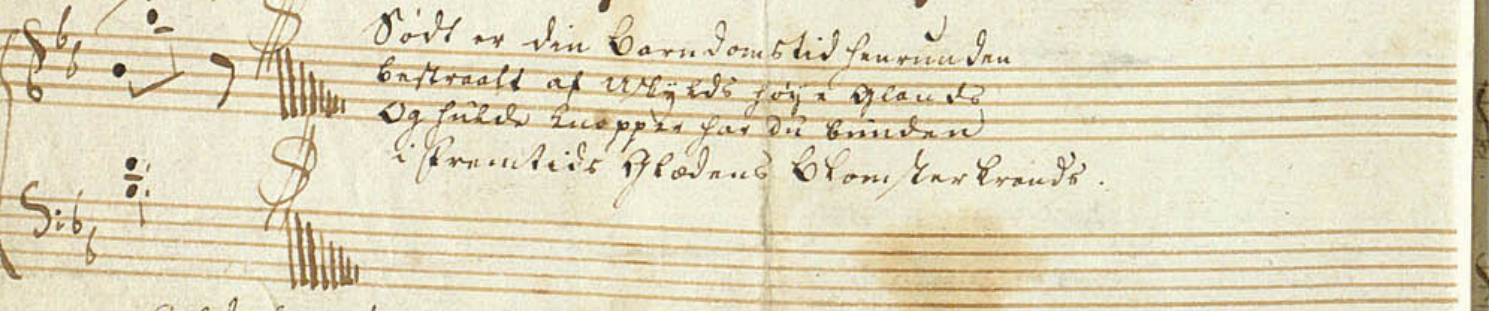 Sødt er din Barndomstid henrunden
bestraalt af Uskylds høye Glands
Og hulde knopper har du bunden
i Fremtids Glædens Blomsterkrands.